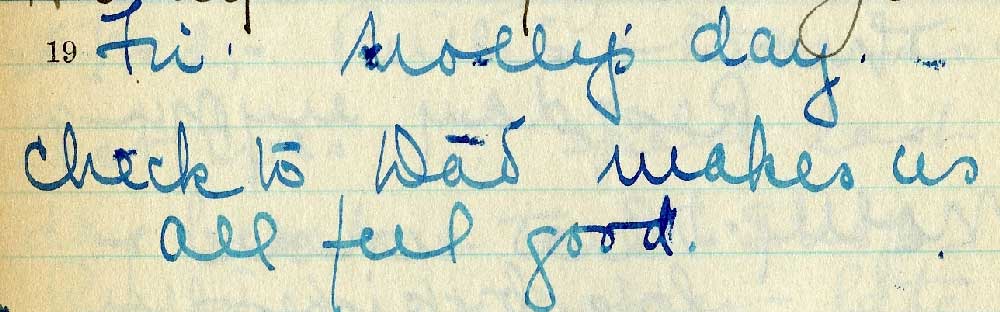 19 Fri. Molly's day. –
check to Dad makes us
all feel good.